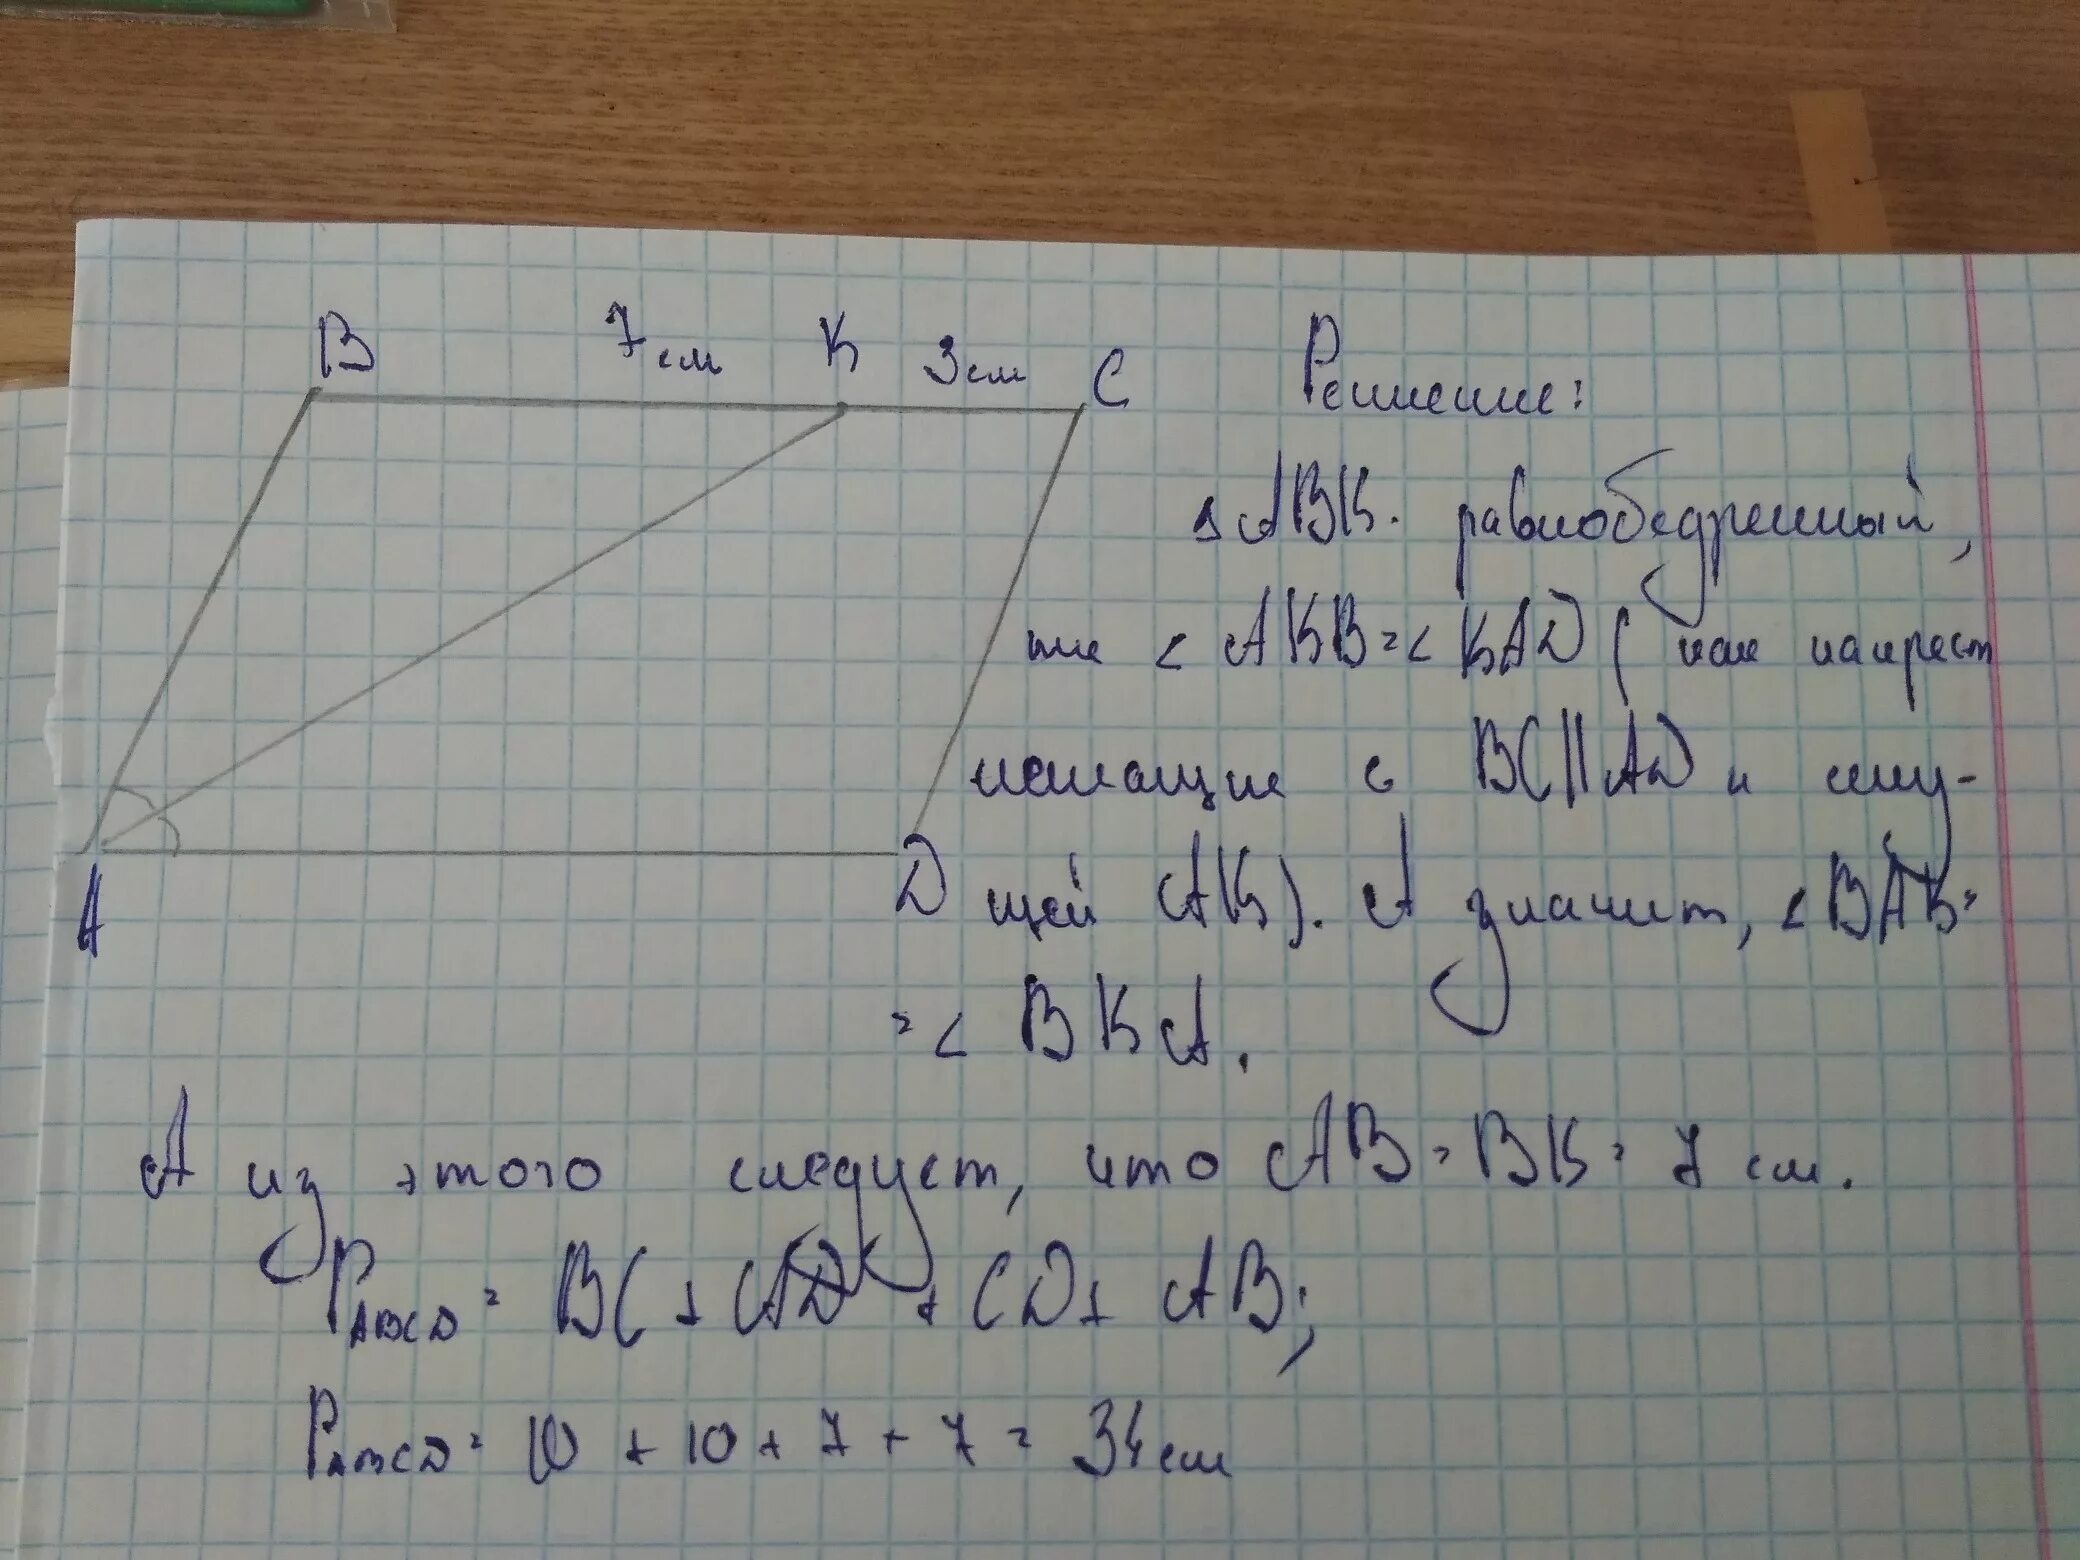 B 7см K 3см C
A D
Решение:
△ABK. равнобедренный,
т.к. < AKB = < KAD ( как накрест
лежащие с BC||AD и секу-
щей AK). А значит, < BAK =
= < BKA.
А из этого следует, что AB = BK = 7 см.
PABCD = BC + AD + CD + AB;
PABCD = 10 + 10 + 7 + 7 = 34 см